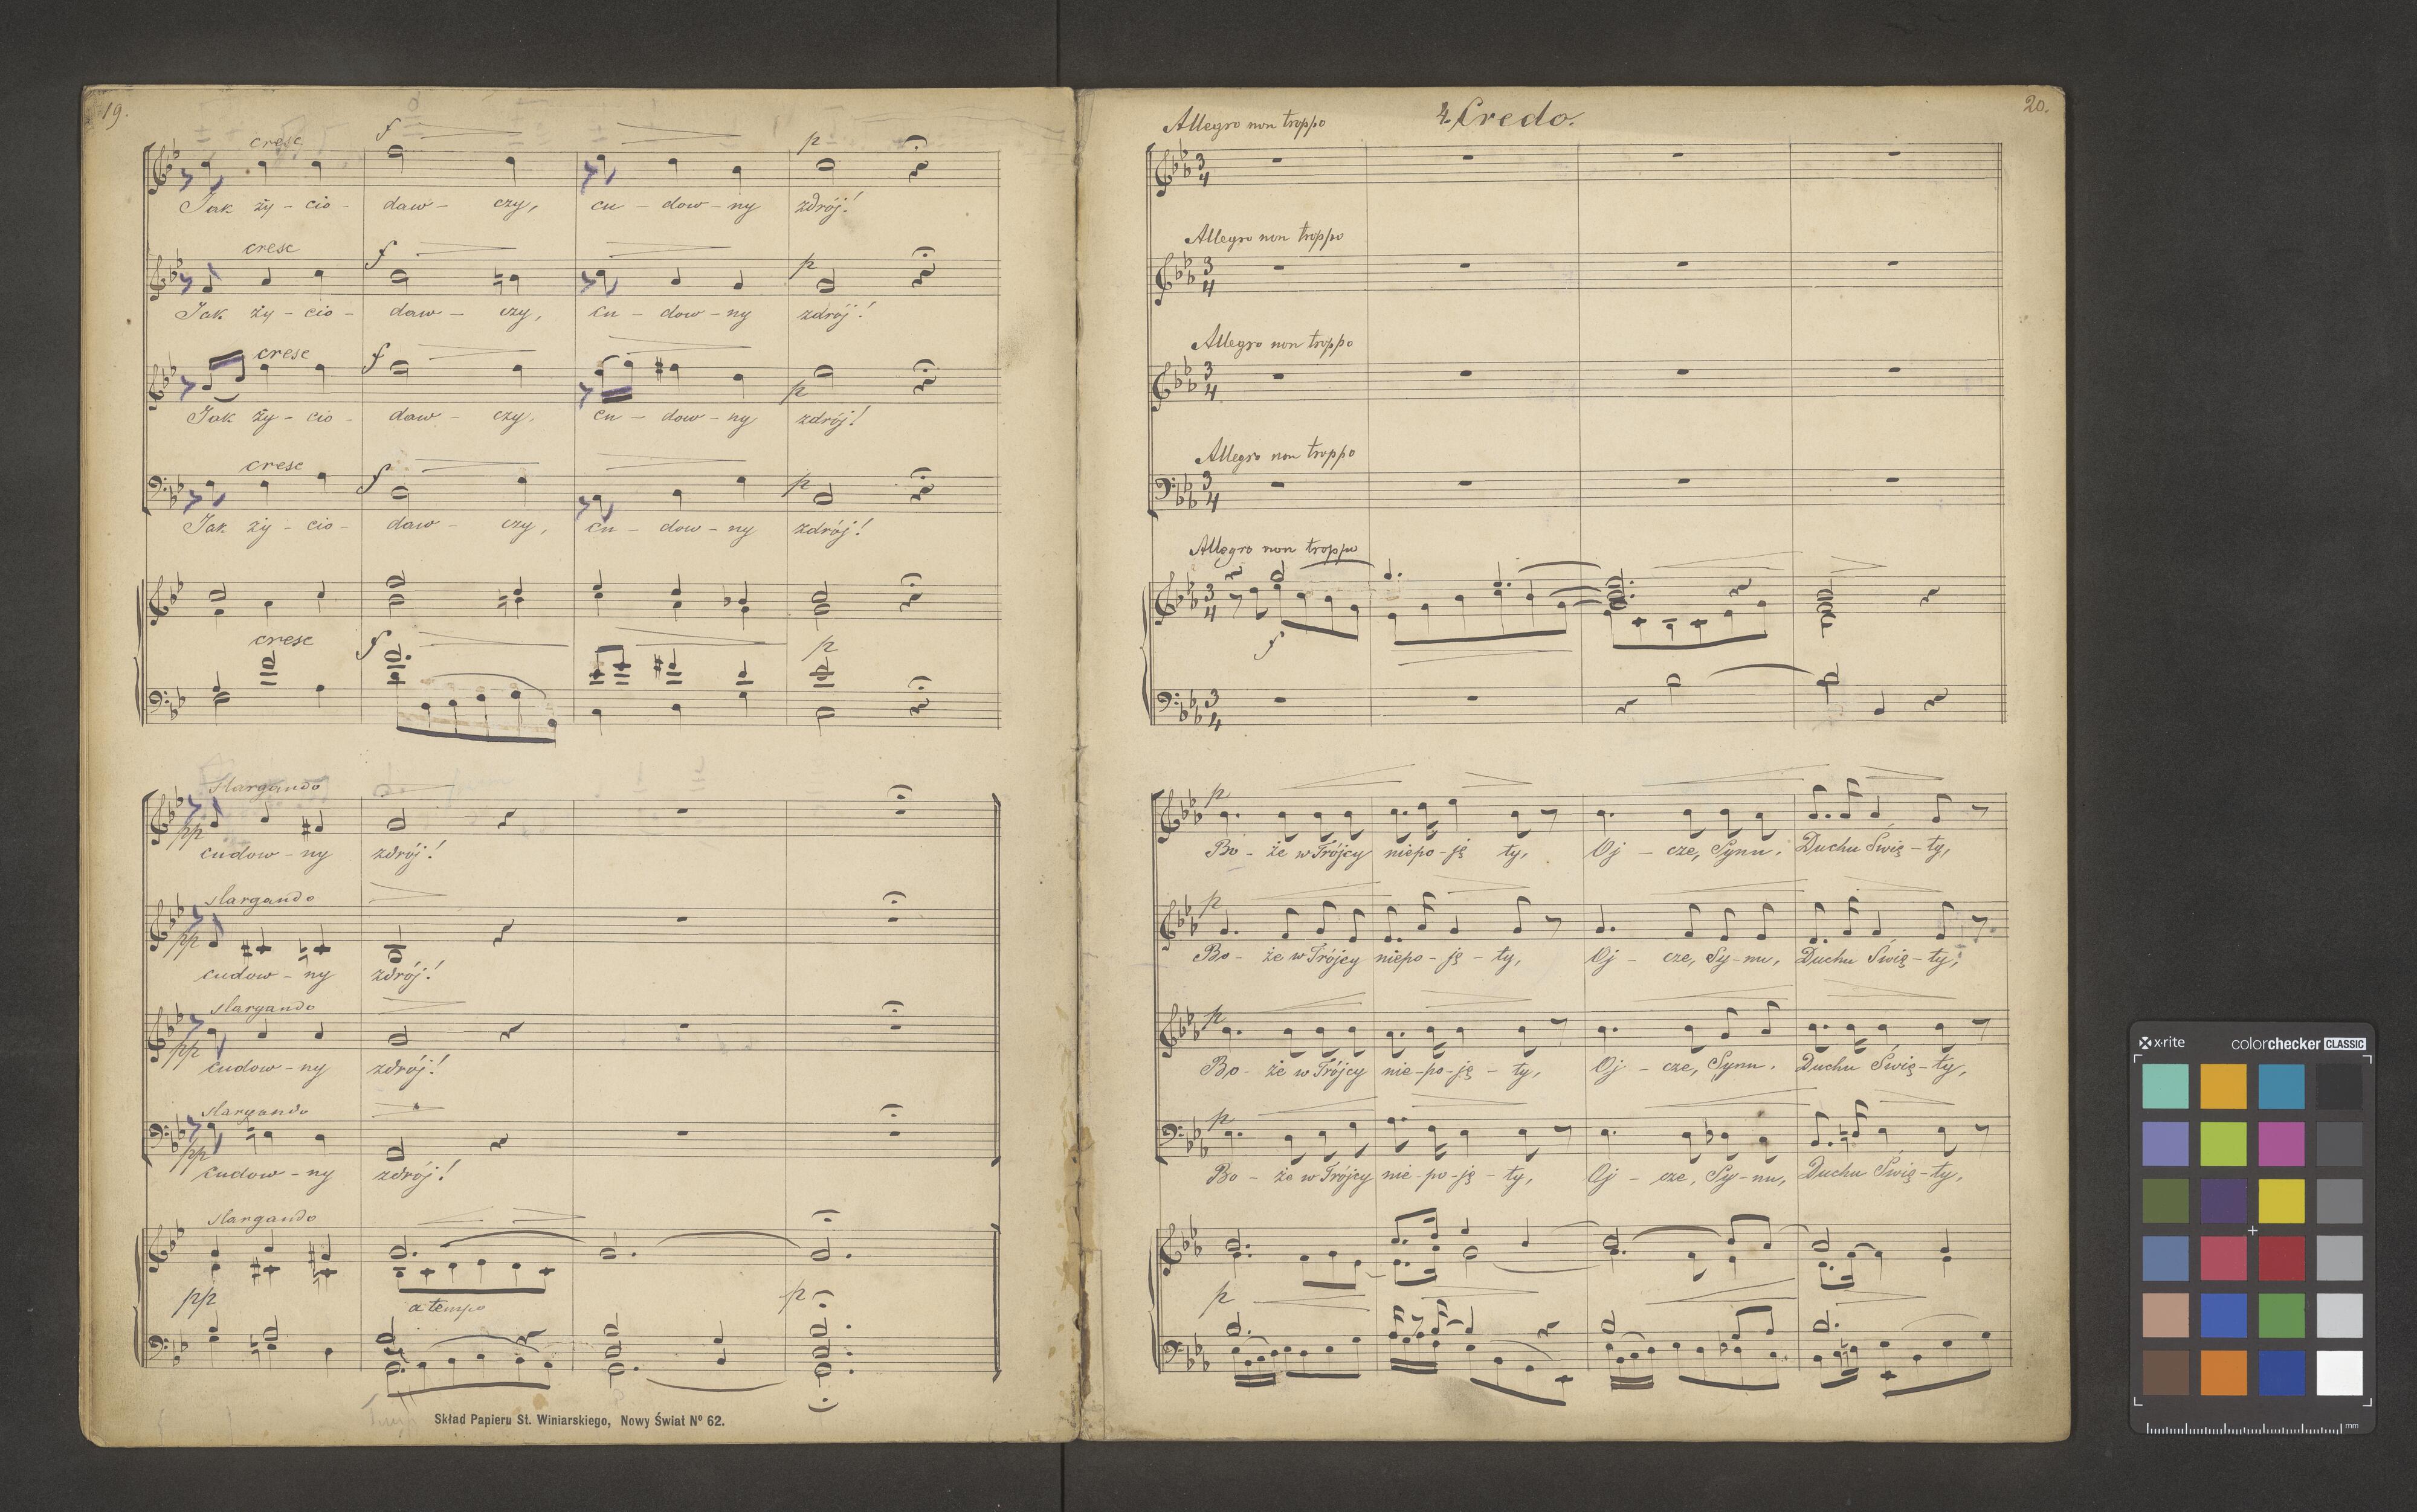 19.
cresc f p
Jak ży - cio - daw - czy, cu - dow - ny zdrój!
cresc f p
Jak ży - cio - daw - czy, cu - dow - ny zdrój!
cresc f p
Jak ży - cio - daw - czy, cu - dow - ny zdrój!
cresc f p
Jak ży - cio - daw - czy, cu - dow - ny zdrój!
cresc f p
slargando
pp
cudow - ny zdrój!
slargando
pp
cudow - ny zdrój!
slargando
pp
cudow - ny zdrój!
slargando
pp
cudow - ny zdrój!
slargando
pp a tempo p
Skład Papieru St. Winiarskiego, Nowy Świat Nº 62.
20.
4. Credo.
Allegro non troppo
3/4
Allegro non troppo
3/4
Allegro non troppo
3/4
Allegro non troppo
3/4
Allegro non troppo
3/4
f
3/4
p
Bo - że w Trójcy niepo - ję ty, Oj - cze, Synu, Duchu Świę - ty,
p
Bo - że w Trójcy niepo - ję - ty, Oj - cze, Sy - nu, Duchu Świę - ty,
p
Bo - że w Trójcy nie - po - ję - ty, Oj - cze, Synu, Duchu Świę - ty,
p
Bo - że w Trójcy nie - po - ję - ty, Oj - cze, Sy - nu, Duchu Świę - ty,
p
x-rite colorchecker CLASSIC
mm